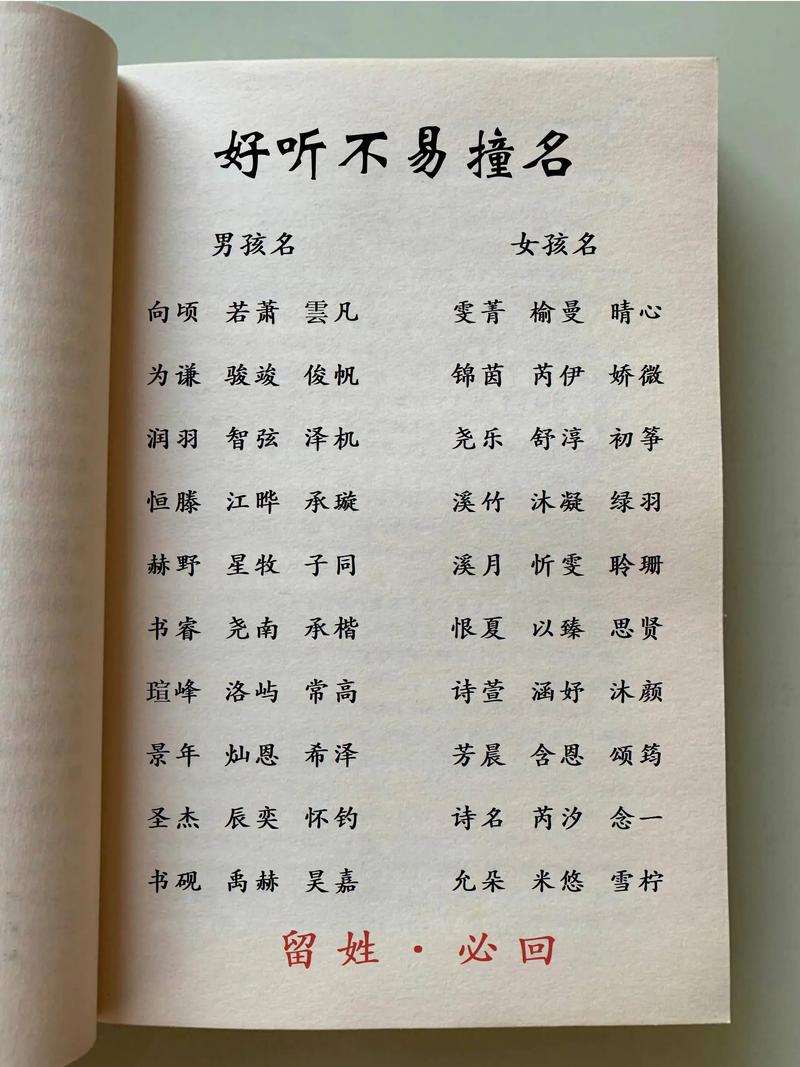 好听不易撞名
男孩名 女孩名
向顷 若萧 雲凡 雯菁 榆曼 晴心
为谦 骏竣 俊帆 锦茵 芮伊 娇微
润羽 智弦 泽机 尧乐 舒淳 初筝
恒滕 江晔 承璇 溪竹 沐凝 绿羽
赫野 星牧 子同 溪月 忻雯 聆珊
书睿 尧南 承楷 恨夏 以臻 思贤
瑄峰 洛屿 常高 诗萱 涵妤 沐颜
景年 灿恩 希泽 芳晨 含恩 颂筠
圣杰 辰奕 怀钓 诗名 芮汐 念一
书砚 禹赫 昊嘉 允朵 米悠 雪柠
留姓·必回